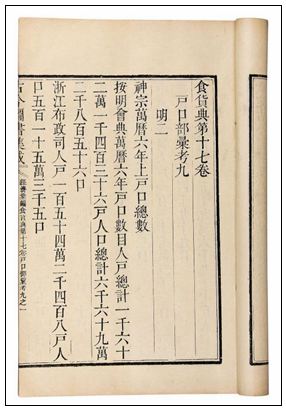 食貨典第十七卷
戶口部彙考九
明二
神宗萬曆六年上戶口總數
按明會典萬曆六年戶口數目人戶總計一千六十
二萬一千四百三十六戶人口總計六千六十九萬
二千八百五十六口
浙江布政司人戶一百五十四萬二千四百八戶人
口五百一十五萬三千五口
古今圖書集成
經濟彙編食貨典第十七卷戶口部彙考九之一